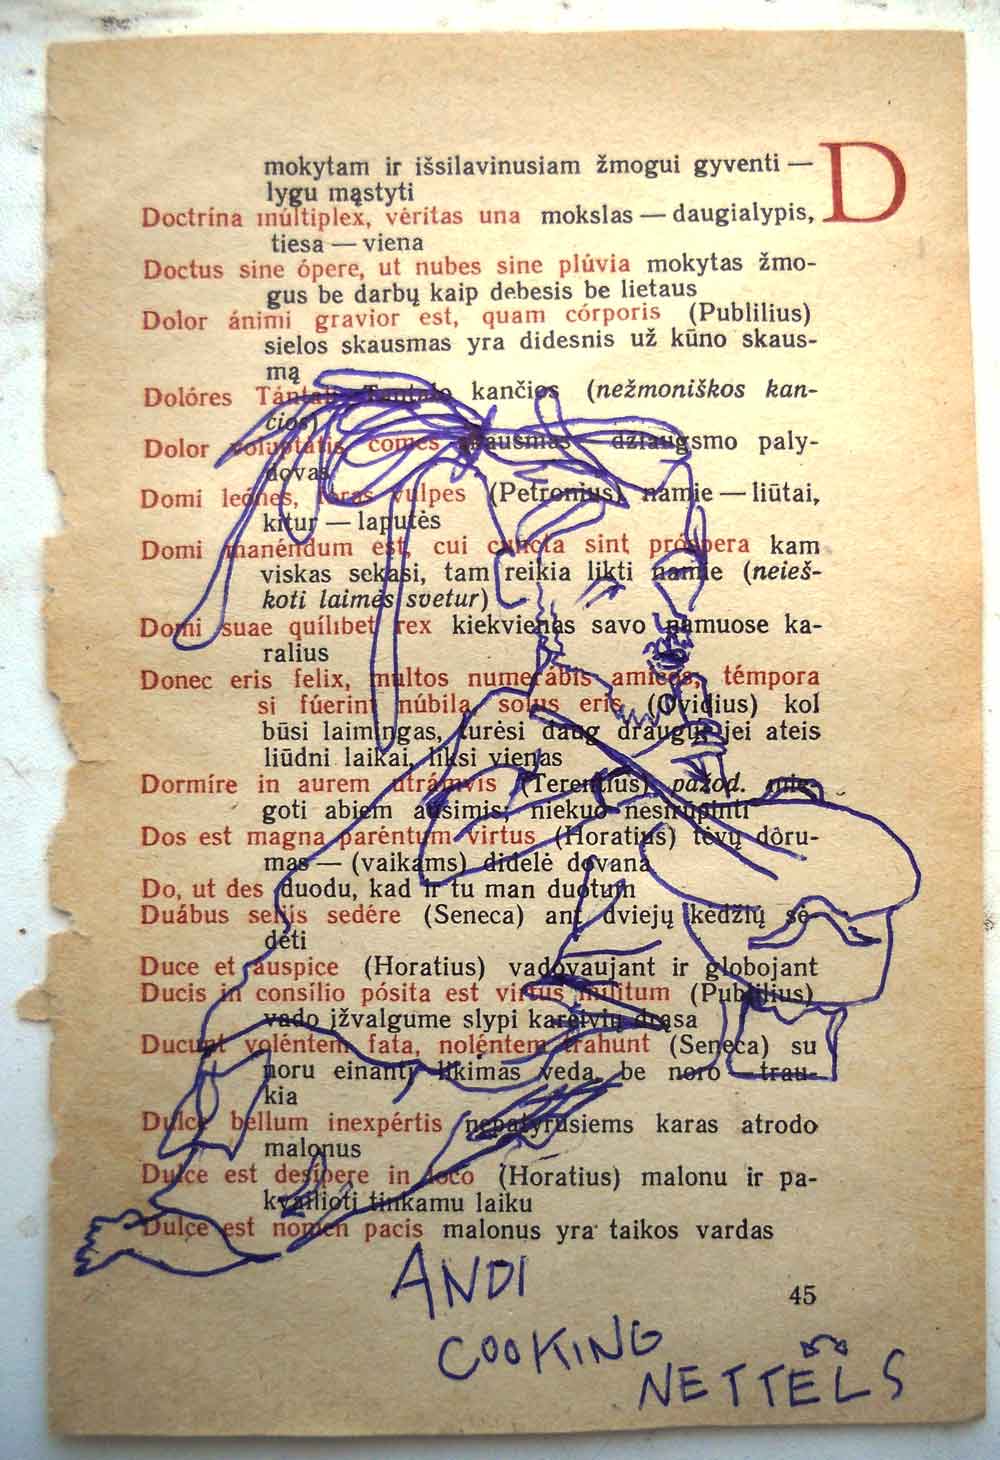 D
mokytam ir išsilavinusiam žmogui gyventi —
lygu mąstyti
Doctrína múltiplex, véritas una mokslas — daugialypis,
tiesa — viena
Doctus sine ópere, ut nubes sine plúvia mokytas žmo-
gus be darbų kaip debesis be lietaus
Dolor ánimi gravior est, quam córporis (Publilius)
sielos skausmas yra didesnis už kūno skaus-
mą
Dolóres Tántali Tantalo kančios (nežmoniškos kan-
čios)
Dolor voluptátis comes skausmas — džiaugsmo paly-
dovas
Domi leónes, foras vulpes (Petronius) namie — liūtai,
kitur — laputės
Domi manéndum est, cui cuncta sint próspera kam
viskas sekasi, tam reikia likti namie (neieš-
koti laimės svetur)
Domi suae quílibet rex kiekvienas savo namuose ka-
ralius
Donec eris felix, multos numerábis amícos, témpora
si fúerint núbila, solus eris (Ovidius) kol
būsi laimingas, turėsi daug draugų, jei ateis
liūdni laikai, liksi vienas
Dormíre in aurem utrámvis (Terentius) pažod. mie-
goti abiem ausimis; niekuo nesirūpinti
Dos est magna paréntum virtus (Horatius) tėvų doru-
mas — (vaikams) didelė dovana
Do, ut des duodu, kad ir tu man duotum
Duábus sellis sedére (Seneca) ant dviejų kėdžių sė-
dėti
Duce et auspice (Horatius) vadovaujant ir globojant
Ducis in consílio pósita est virtus mílitum (Publilius)
vado įžvalgume slypi kareivių drąsa
Ducunt voléntem fata, noléntem trahunt (Seneca) su
noru einantį likimas veda, be noro — trau-
kia
Dulce bellum inexpértis nepatyrusiems karas atrodo
malonus
Dulce est desípere in loco (Horatius) malonu ir pa-
kvailioti tinkamu laiku
Dulce est nomen pacis malonus yra taikos vardas
45
ANDI
COOKING
NETTELS